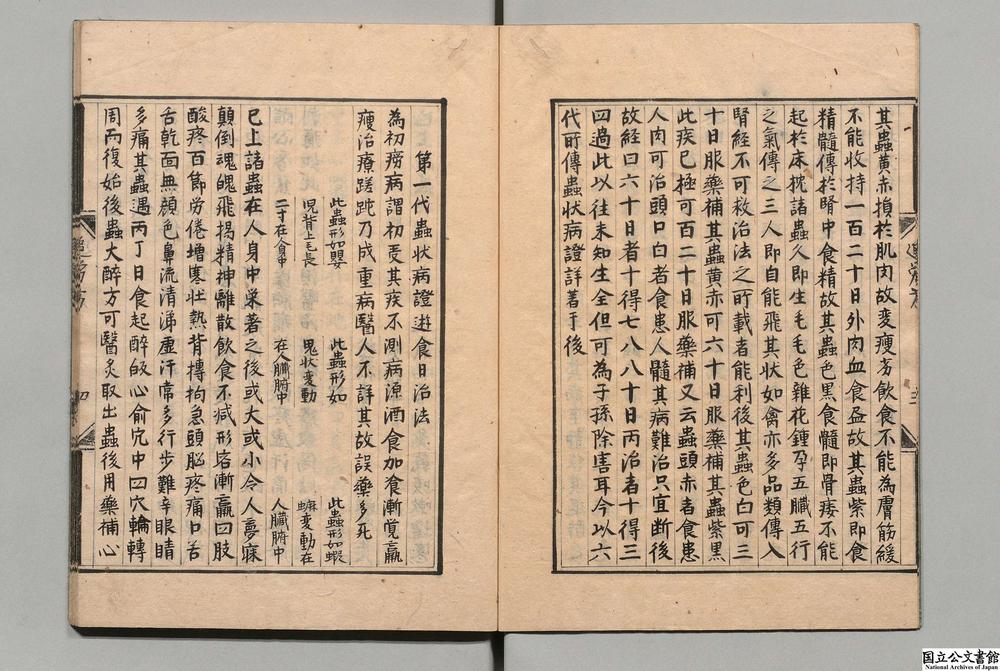 其蟲黄赤損扵肌肉故変瘦劣飲食不能為膚筋緩
不能收持一百二十日外肉血食盃故其蟲紫即食
精髓傳扵腎中食精故其蟲色黒食髓即骨痿不能
起扵床枕諸蟲人即生毛毛色雜花鍾孕五臓五行
之氣傳之三人即自能飛其状如禽亦多品類傳入
腎経不可救治法之所載者能利後其蟲色白可三
十日服藥補其蟲黄赤可六十日服藥補其蟲紫黒
此疾已極可百二十日服藥補又云蟲頭赤者食患
人肉可治頭口白者食患人髓其病難治只宜断後
故経曰六十日者十得七八八十日丙治者十得三
四過此以往未知生全但可為子孫除害耳今以六
代所傳蟲状病證詳著于後
第一代蟲状病證逰食日治法
為初癆病謂初受其疾不測病源酒食加飡漸覺羸
瘦治療蹉跎乃成重病醫人不詳其故誤藥多死
此蟲形如嬰
児背上毛長
二寸在人身中
此蟲形如
鬼状変動
在人臓腑中
此蟲形如蝦
蟆変動在
人臓腑中
已上諸蟲在人身中巣著之後或大或小令人夢寐
顛倒魂魄飛揚精神離散飲食不減形容漸羸四肢
酸疼百節労倦増寒壮熱背摶拘急頭脳疼痛口舌
舌乾面無顔色鼻流清涕虚汗常多行歩難辛眼睛
多痛其蟲遇丙丁日食起醉皈心俞穴中四穴輪轉
周而復始後蟲大醉方可醫灸取出蟲後用藥補心
四
国立公文書館
National Archives of Japan